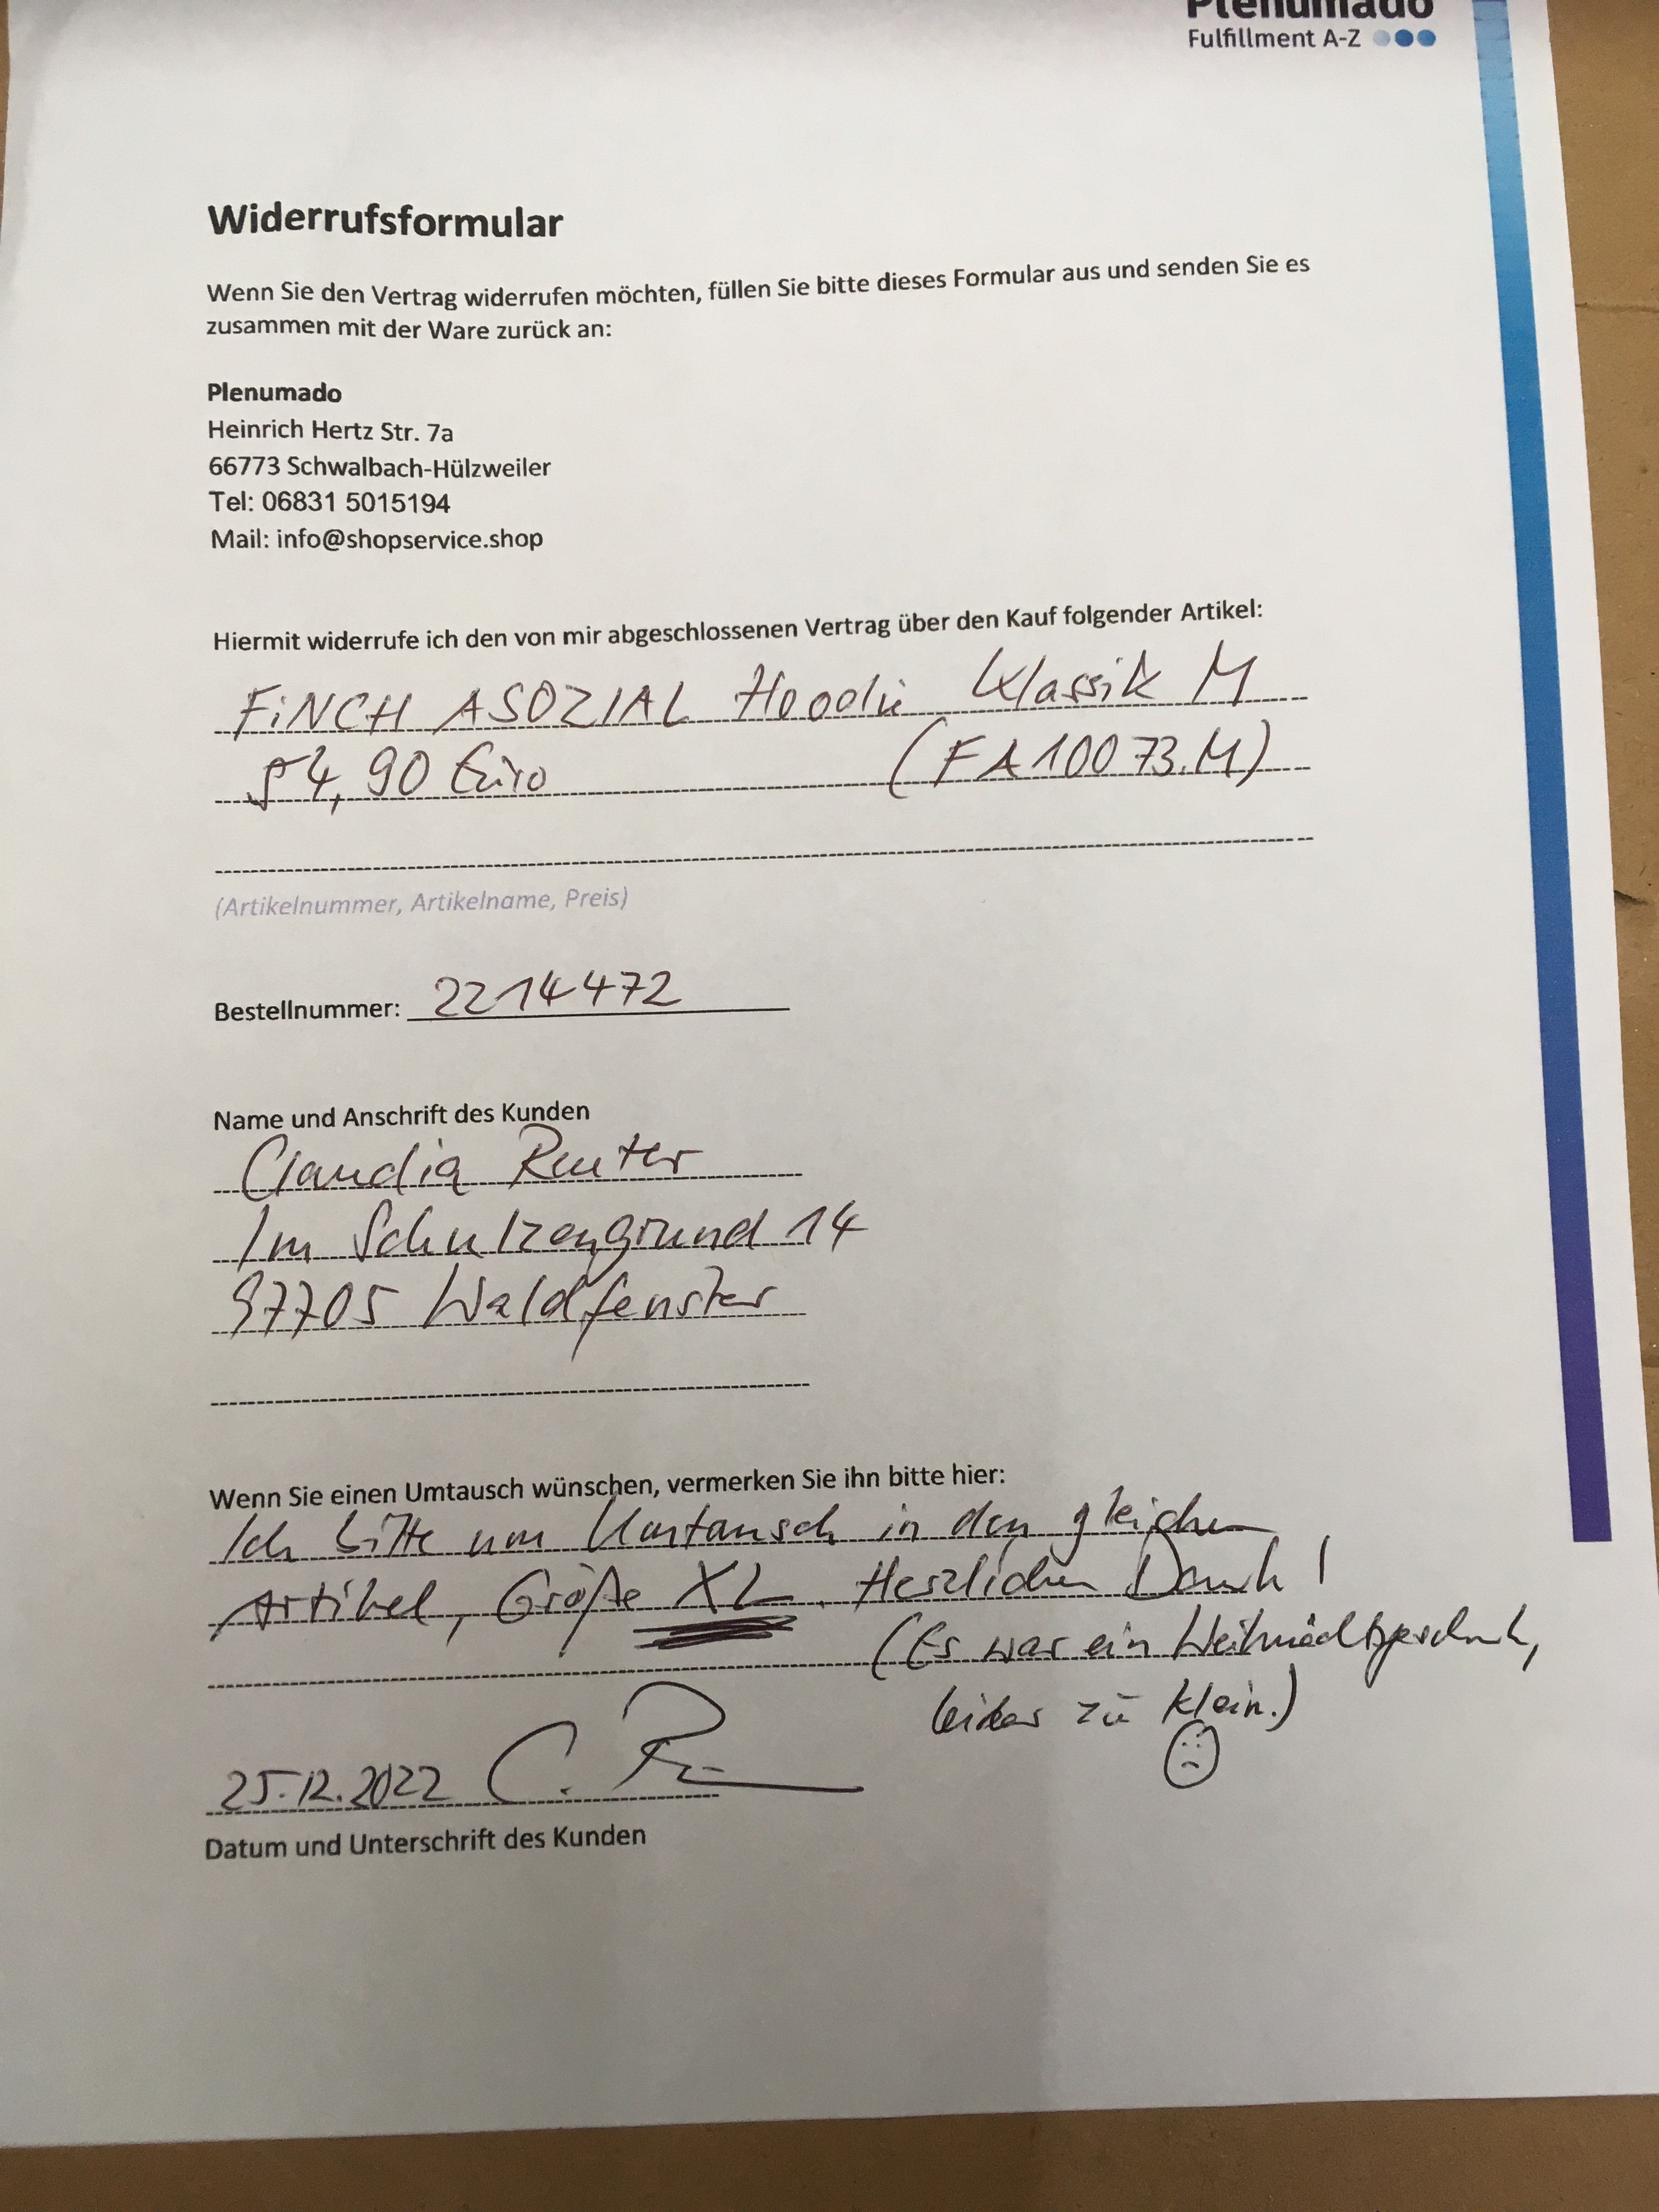 Plenumado
Fulfillment A-Z
Widerrufsformular
Wenn Sie den Vertrag widerrufen möchten, füllen Sie bitte dieses Formular aus und senden Sie es
zusammen mit der Ware zurück an:
Plenumado
Heinrich Hertz Str. 7a
66773 Schwalbach-Hülzweiler
Tel: 06831 5015194
Mail: info@shopservice.shop
Hiermit widerrufe ich den von mir abgeschlossenen Vertrag über den Kauf folgender Artikel:
FiNCH ASOZIAL Hoodie Klassik M
54,90 Euro (FA10073.M)
(Artikelnummer, Artikelname, Preis)
Bestellnummer: 2214472
Name und Anschrift des Kunden
Claudia Reuter
Im Schulzengrund 14
97705 Waldfenster
Wenn Sie einen Umtausch wünschen, vermerken Sie ihn bitte hier:
Ich bitte um Umtausch in den gleichen
Artikel, Größe XL. Herzlichen Dank!
(Es war ein Weihnachtsgeschenk,
leider zu klein.)
25.12.2022 C. R
Datum und Unterschrift des Kunden